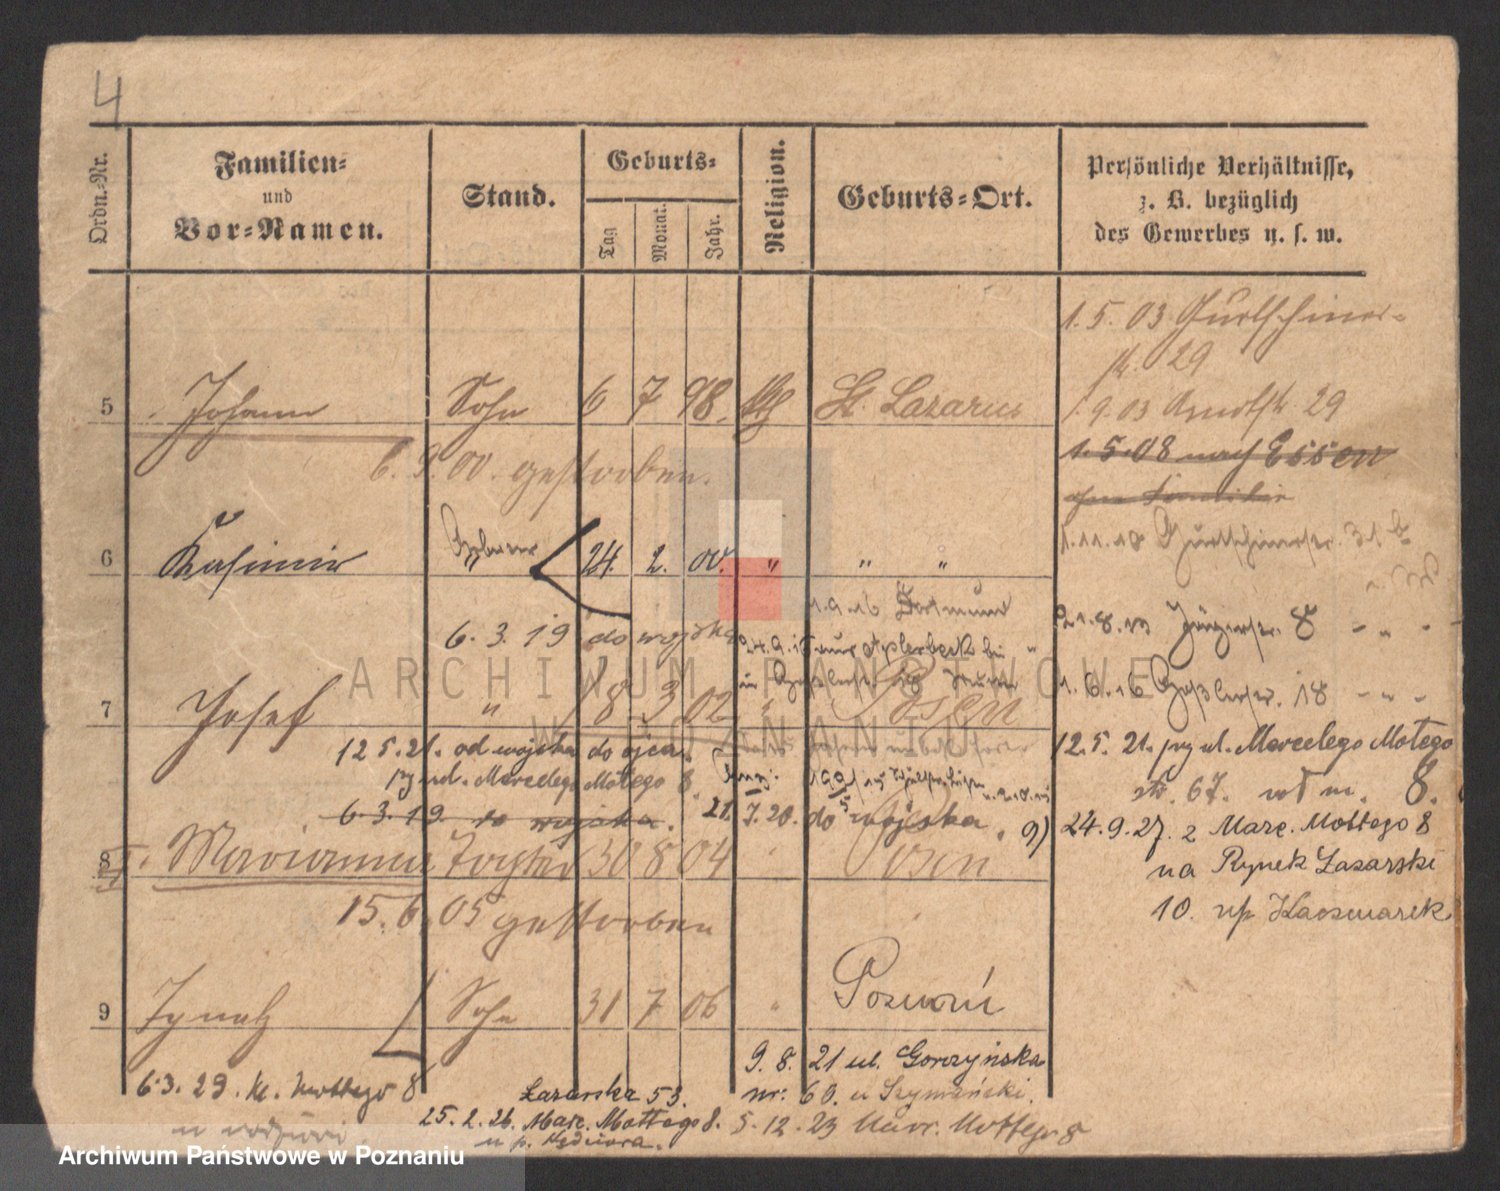 4
Ordn.-Nr.
Familien-
und
Vor-Namen.
Stand.
Geburts-
Tag
Monat.
Jahr.
Religion.
Geburts-Ort.
Persönliche Verhältnisse,
z. B. bezüglich
des Gewerbes u. s. w.
1. 5. 03 Gurtschiner-
str. 29
5 Johann Sohn 6 7 98. kth St. Lazarus
1. 9. 03 Arndtstr. 29
6. 9. 00. gestorben.
1. 5. 08 nach Essen
ohne Familie
6 Kasimir 24. 2. 00. " " "
1. 11. 10 Gurtschinerstr. 31. b.
1. 9. 16 Dortmund
21. 8. 13 Jägerstr. 8 - " -
6. 3. 19 do wojska
24. 9. 16 aus Aplerbeck bei
7 Josef " 18 3 02 " Posen
1. 6. 16 Geßlerstr. 18 - " -
12 5. 21. od wojska do ojca.
12. 5. 21. przy ul. Marcelego Motego
przy ul. Marcelego Motego 8.
str. 67. 8.
6. 3. 19. do wojska. 21. 7. 20. do wojska. 9)
24. 9. 27. z Marc. Mottego 8
8 Marianna Tochter 30 8 04 " Posen
na Rynek Łazarski
10. Kaczmarek
15. 6. 05 gestorben
9 Ignatz Sohn 31 7 06 " Poznań
9. 8. 21 ul. Gorczyńska
6. 3. 29. Mottego 8
Łazarska 53.
nr: 60. u Szymański.
25. 2. 26. Marc. Mottego 8.
5. 12. 23 Marc. Mottego 8
u p.
ARCHIWUM PAŃSTWOWE
W POZNANIU
Archiwum Państwowe w Poznaniu